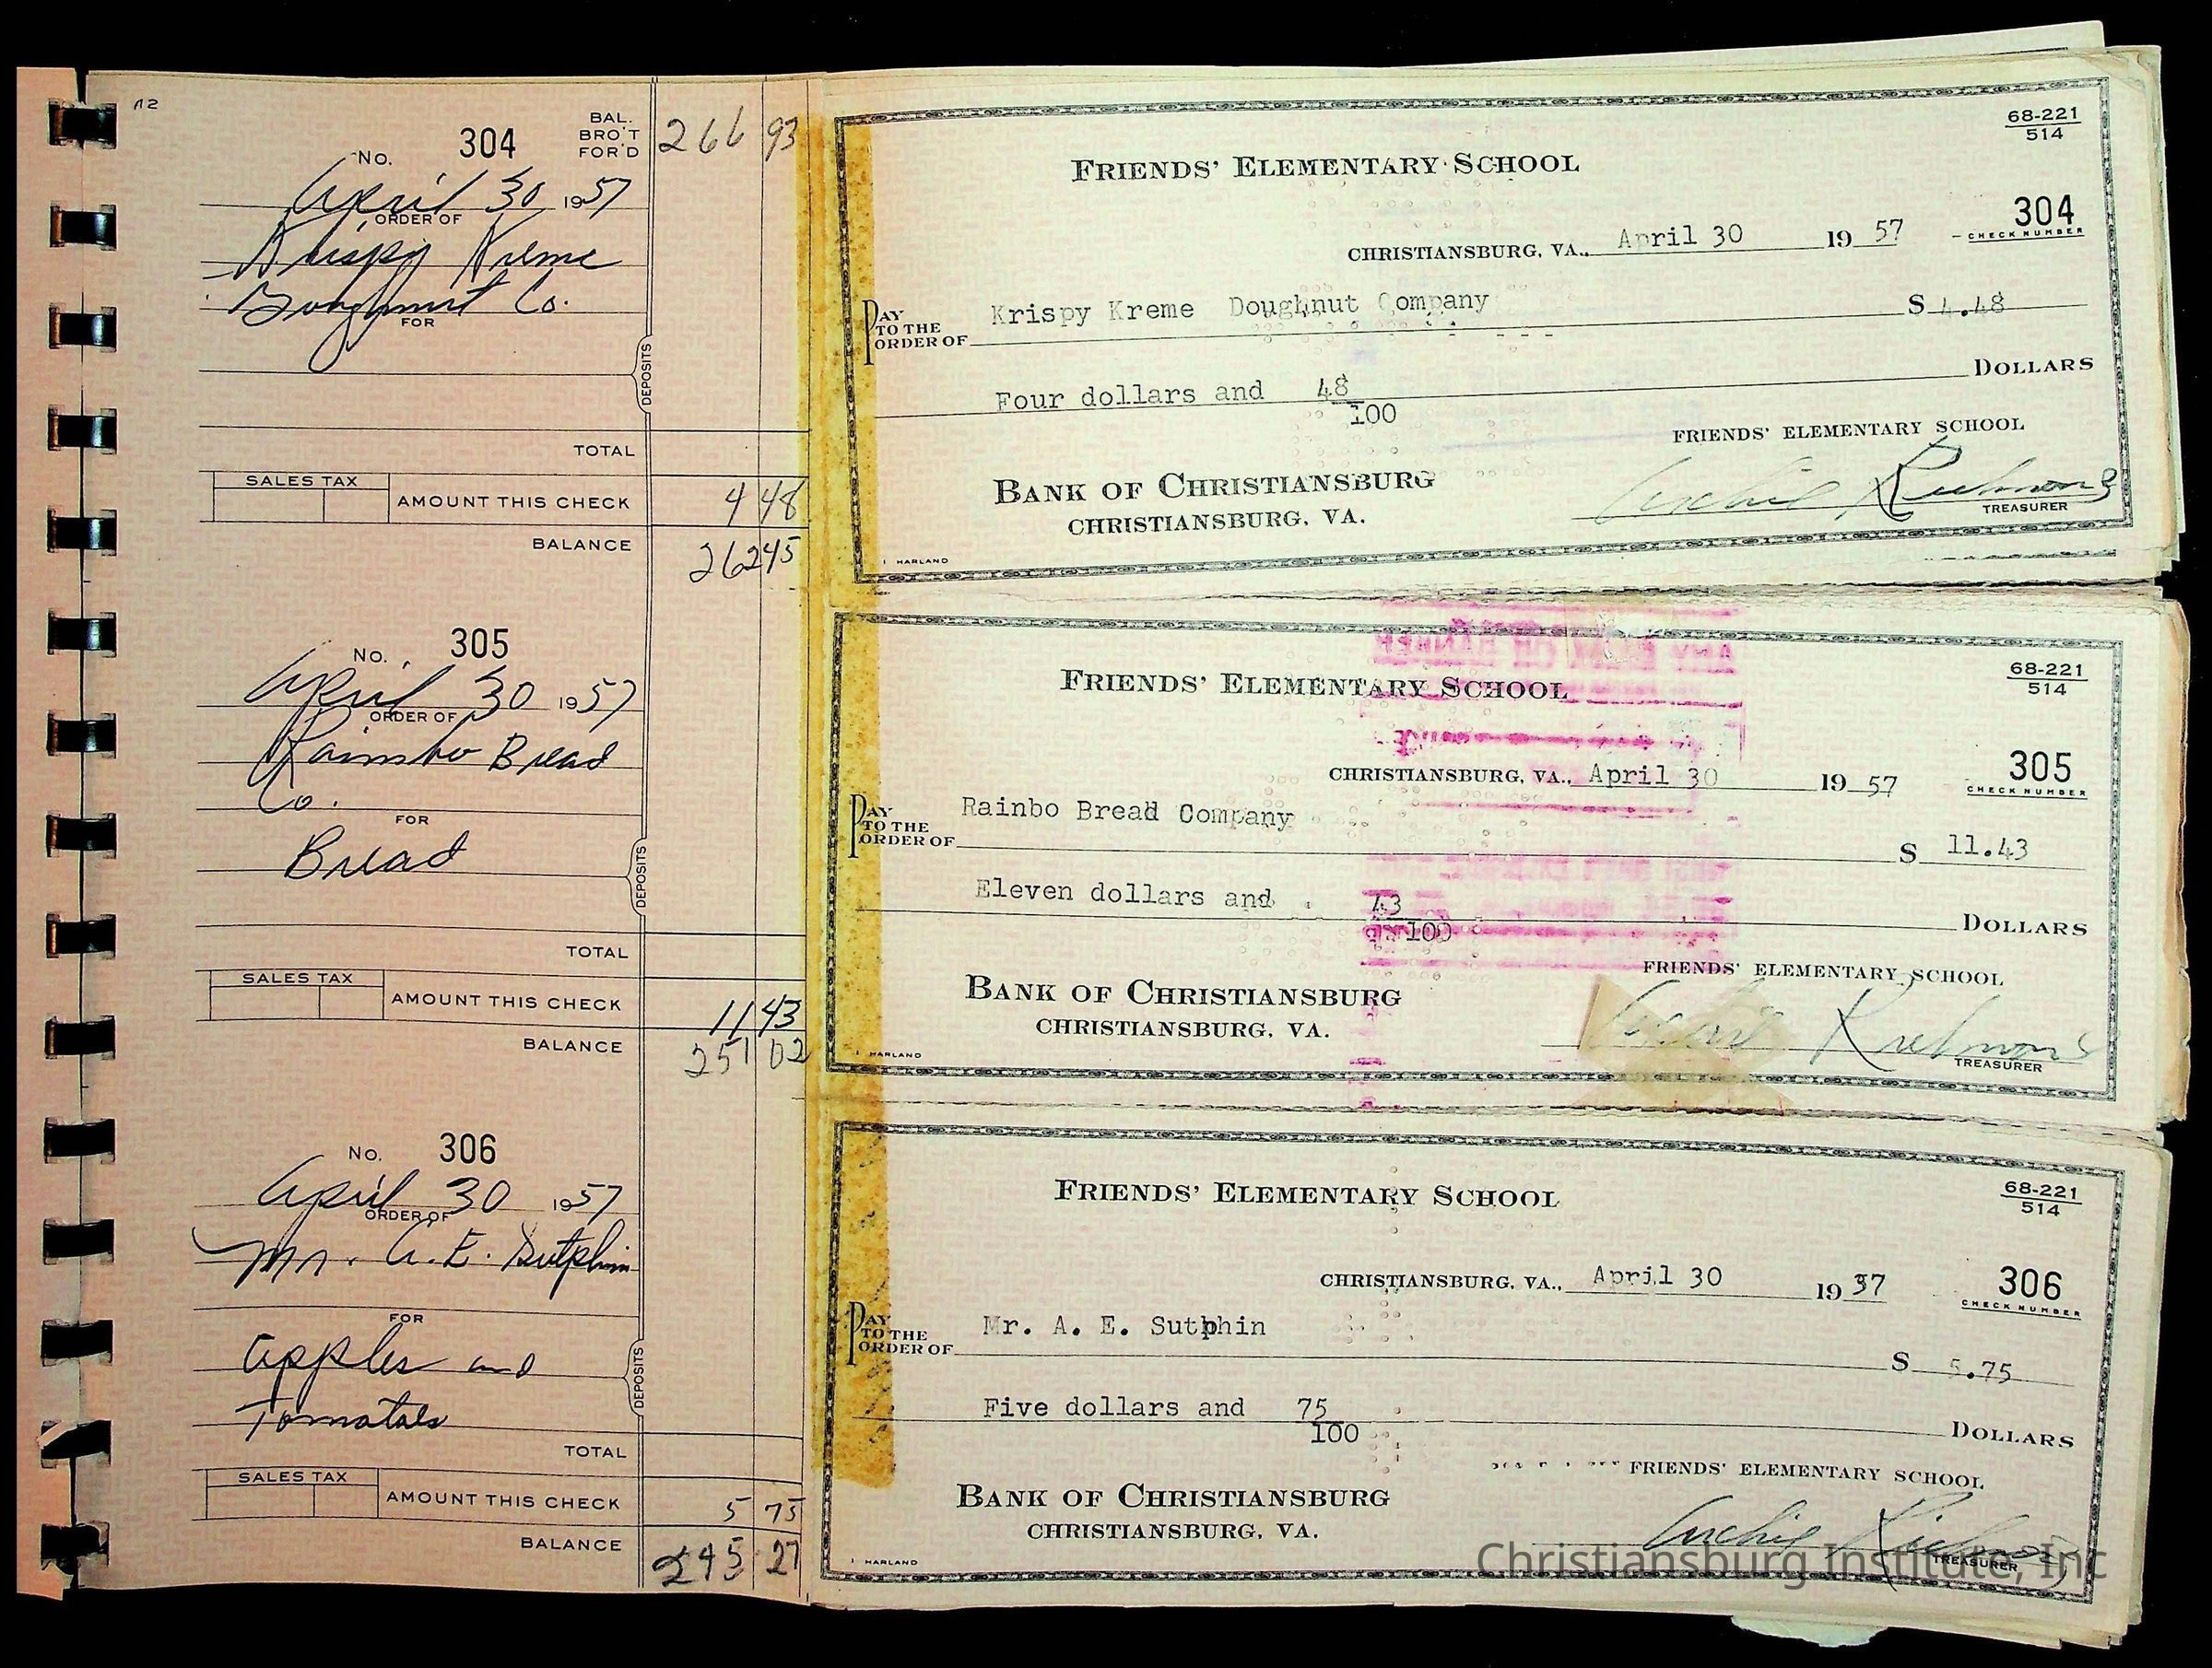 No. 304
BAL. BRO'T FOR'D 266 93
April 30 1957
ORDER OF
Krispy Kreme
Doughnut Co.
FOR
DEPOSITS
TOTAL
SALES TAX
AMOUNT THIS CHECK 4 48
BALANCE 262 45
No. 305
April 30 1957
ORDER OF
Rainbo Bread
Co.
FOR
Bread
DEPOSITS
TOTAL
SALES TAX
AMOUNT THIS CHECK 11 43
BALANCE 251 02
No. 306
April 30 1957
ORDER OF
Mr. A. E. Sutphin
FOR
Apples and
Tomatoes
DEPOSITS
TOTAL
SALES TAX
AMOUNT THIS CHECK 5 75
BALANCE 245 27
68-221
514
FRIENDS' ELEMENTARY SCHOOL
304
CHECK NUMBER
CHRISTIANSBURG, VA., April 30 19 57
PAY TO THE ORDER OF Krispy Kreme Doughnut Company $ 4.48
Four dollars and 48/100 DOLLARS
FRIENDS' ELEMENTARY SCHOOL
BANK OF CHRISTIANSBURG
CHRISTIANSBURG, VA.
Archie Richmond
TREASURER
HARLAND
68-221
514
FRIENDS' ELEMENTARY SCHOOL
305
CHECK NUMBER
CHRISTIANSBURG, VA., April 30 19 57
PAY TO THE ORDER OF Rainbo Bread Company $ 11.43
Eleven dollars and 43/100 DOLLARS
FRIENDS' ELEMENTARY SCHOOL
BANK OF CHRISTIANSBURG
CHRISTIANSBURG, VA.
Archie Richmond
TREASURER
HARLAND
68-221
514
FRIENDS' ELEMENTARY SCHOOL
306
CHECK NUMBER
CHRISTIANSBURG, VA., April 30 19 57
PAY TO THE ORDER OF Mr. A. E. Sutphin $ 5.75
Five dollars and 75/100 DOLLARS
FRIENDS' ELEMENTARY SCHOOL
BANK OF CHRISTIANSBURG
CHRISTIANSBURG, VA.
Archie Richmond
TREASURER
HARLAND
Christiansburg Institute, Inc